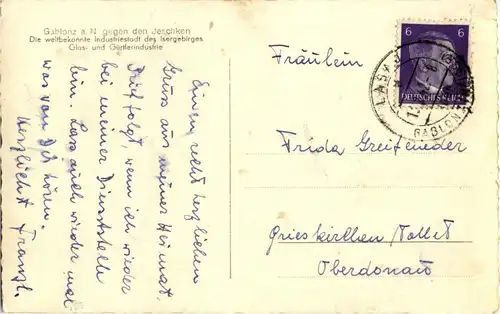 Gablonz a. N. gegen den Jeschken
Die weltbekannte Industriestadt des Isergebirges
Glas- und Gürtlerindustrie
Einen recht herzlichen
Gruss aus meiner Heimat.
Brief folgt, wenn ich wieder
bei meiner Dienststelle
bin. Lass auch wieder mal
was von Dir hören.
Herzlichst Franzl.
6 6
DEUTSCHES REICH
GABLONZ
Fräulein
Frida Greifeneder
Grieskirchen Tollet
Oberdonau